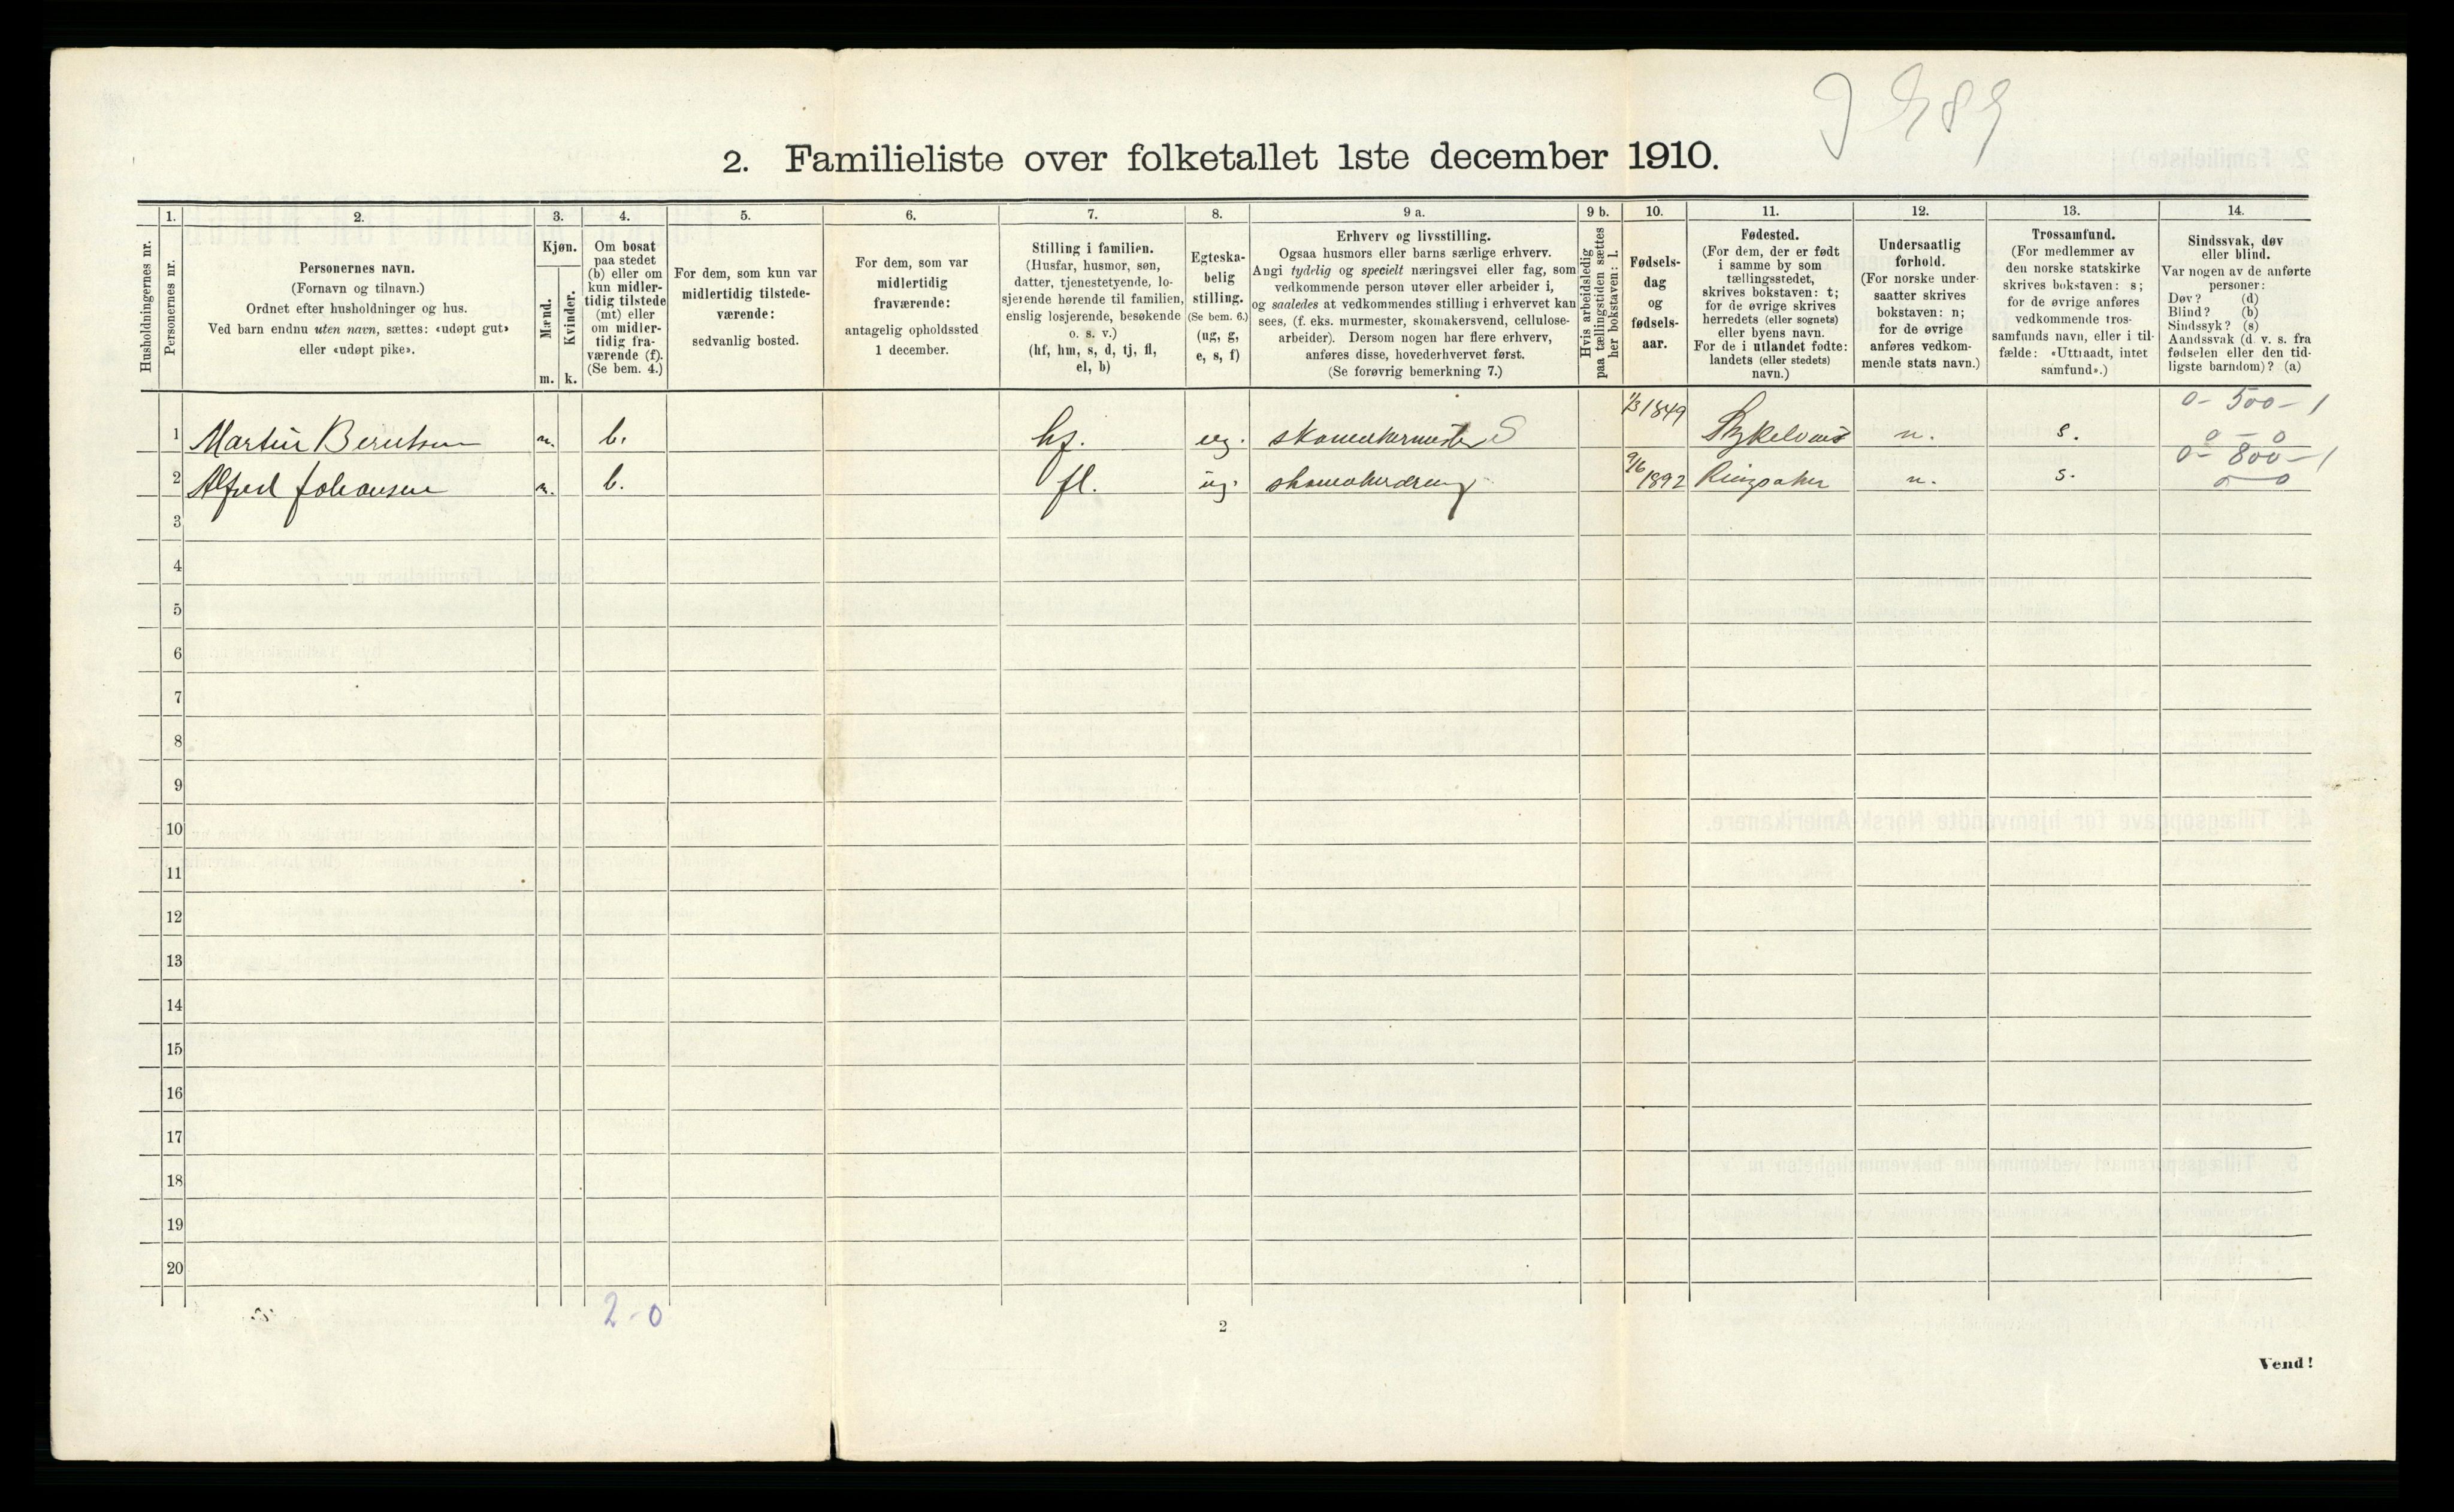 2. Familieliste over folketallet 1ste december 1910.
Husholdningernes nr.
1.
Personernes nr.
2.
Personernes navn.
(Fornavn og tilnavn.)
Ordnet efter husholdninger og hus.
Ved barn endnu uten navn, sættes: «udøpt gut»
eller «udøpt pike».
3.
Kjøn.
Mænd.
Kvinder.
m. k.
4.
Om bosat
paa stedet
(b) eller om
kun midler-
tidig tilstede
(mt) eller
om midler-
tidig fra-
værende (f).
(Se bem. 4.)
5.
For dem, som kun var
midlertidig tilstede-
værende:
sedvanlig bosted.
6.
For dem, som var
midlertidig
fraværende:
antagelig opholdssted
1 december.
7.
Stilling i familien.
(Husfar, husmor, søn,
datter, tjenestetyende, lo-
sjerende hørende til familien,
enslig losjerende, besøkende
o. s. v.)
(hf, hm, s, d, tj, fl,
el, b)
8.
Egteska-
belig
stilling.
(Se bem. 6.)
(ug, g,
e, s, f)
9 a.
Erhverv og livsstilling.
Ogsaa husmors eller barns særlige erhverv.
Angi tydelig og specielt næringsvei eller fag, som
vedkommende person utøver eller arbeider i,
og saaledes at vedkommendes stilling i erhvervet kan
sees, (f. eks. murmester, skomakersvend, cellulose-
arbeider). Dersom nogen har flere erhverv,
anføres disse, hovederhvervet først.
(Se forøvrig bemerkning 7.)
9 b.
Hvis arbeidsledig
paa tællingstiden sættes
her bokstaven: l.
10.
Fødsels-
dag
og
fødsels-
aar.
11.
Fødested.
(For dem, der er født
i samme by som
tællingsstedet,
skrives bokstaven: t;
for de øvrige skrives
herredets (eller sognets)
eller byens navn.
For de i utlandet fødte:
landets (eller stedets)
navn.)
12.
Undersaatlig
forhold.
(For norske under-
saatter skrives
bokstaven: n;
for de øvrige
anføres vedkom-
mende stats navn.)
13.
Trossamfund.
(For medlemmer av
den norske statskirke
skrives bokstaven: s;
for de øvrige anføres
vedkommende tros-
samfunds navn, eller i til-
fælde: «Uttraadt, intet
samfund».)
14.
Sindssvak, døv
eller blind.
Var nogen av de anførte
personer:
Døv? (d)
Blind? (b)
Sindssyk? (s)
Aandssvak (d. v. s. fra
fødselen eller den tid-
ligste barndom)? (a)
0 - 500 - 1
1 Martin Berntsen m. b. hf. ug. skomakermester S 1/3 1849 n. s. 0 - 0
0 - 800 - 1
2 Alfred Johansen m. b. fl. ug. skomakerdreng 9/6 1892 Ringsaker n. s. 0 - 0
3
4
5
6
7
8
9
10
11
12
13
14
15
16
17
18
19
20
2 - 0
2
Vend!